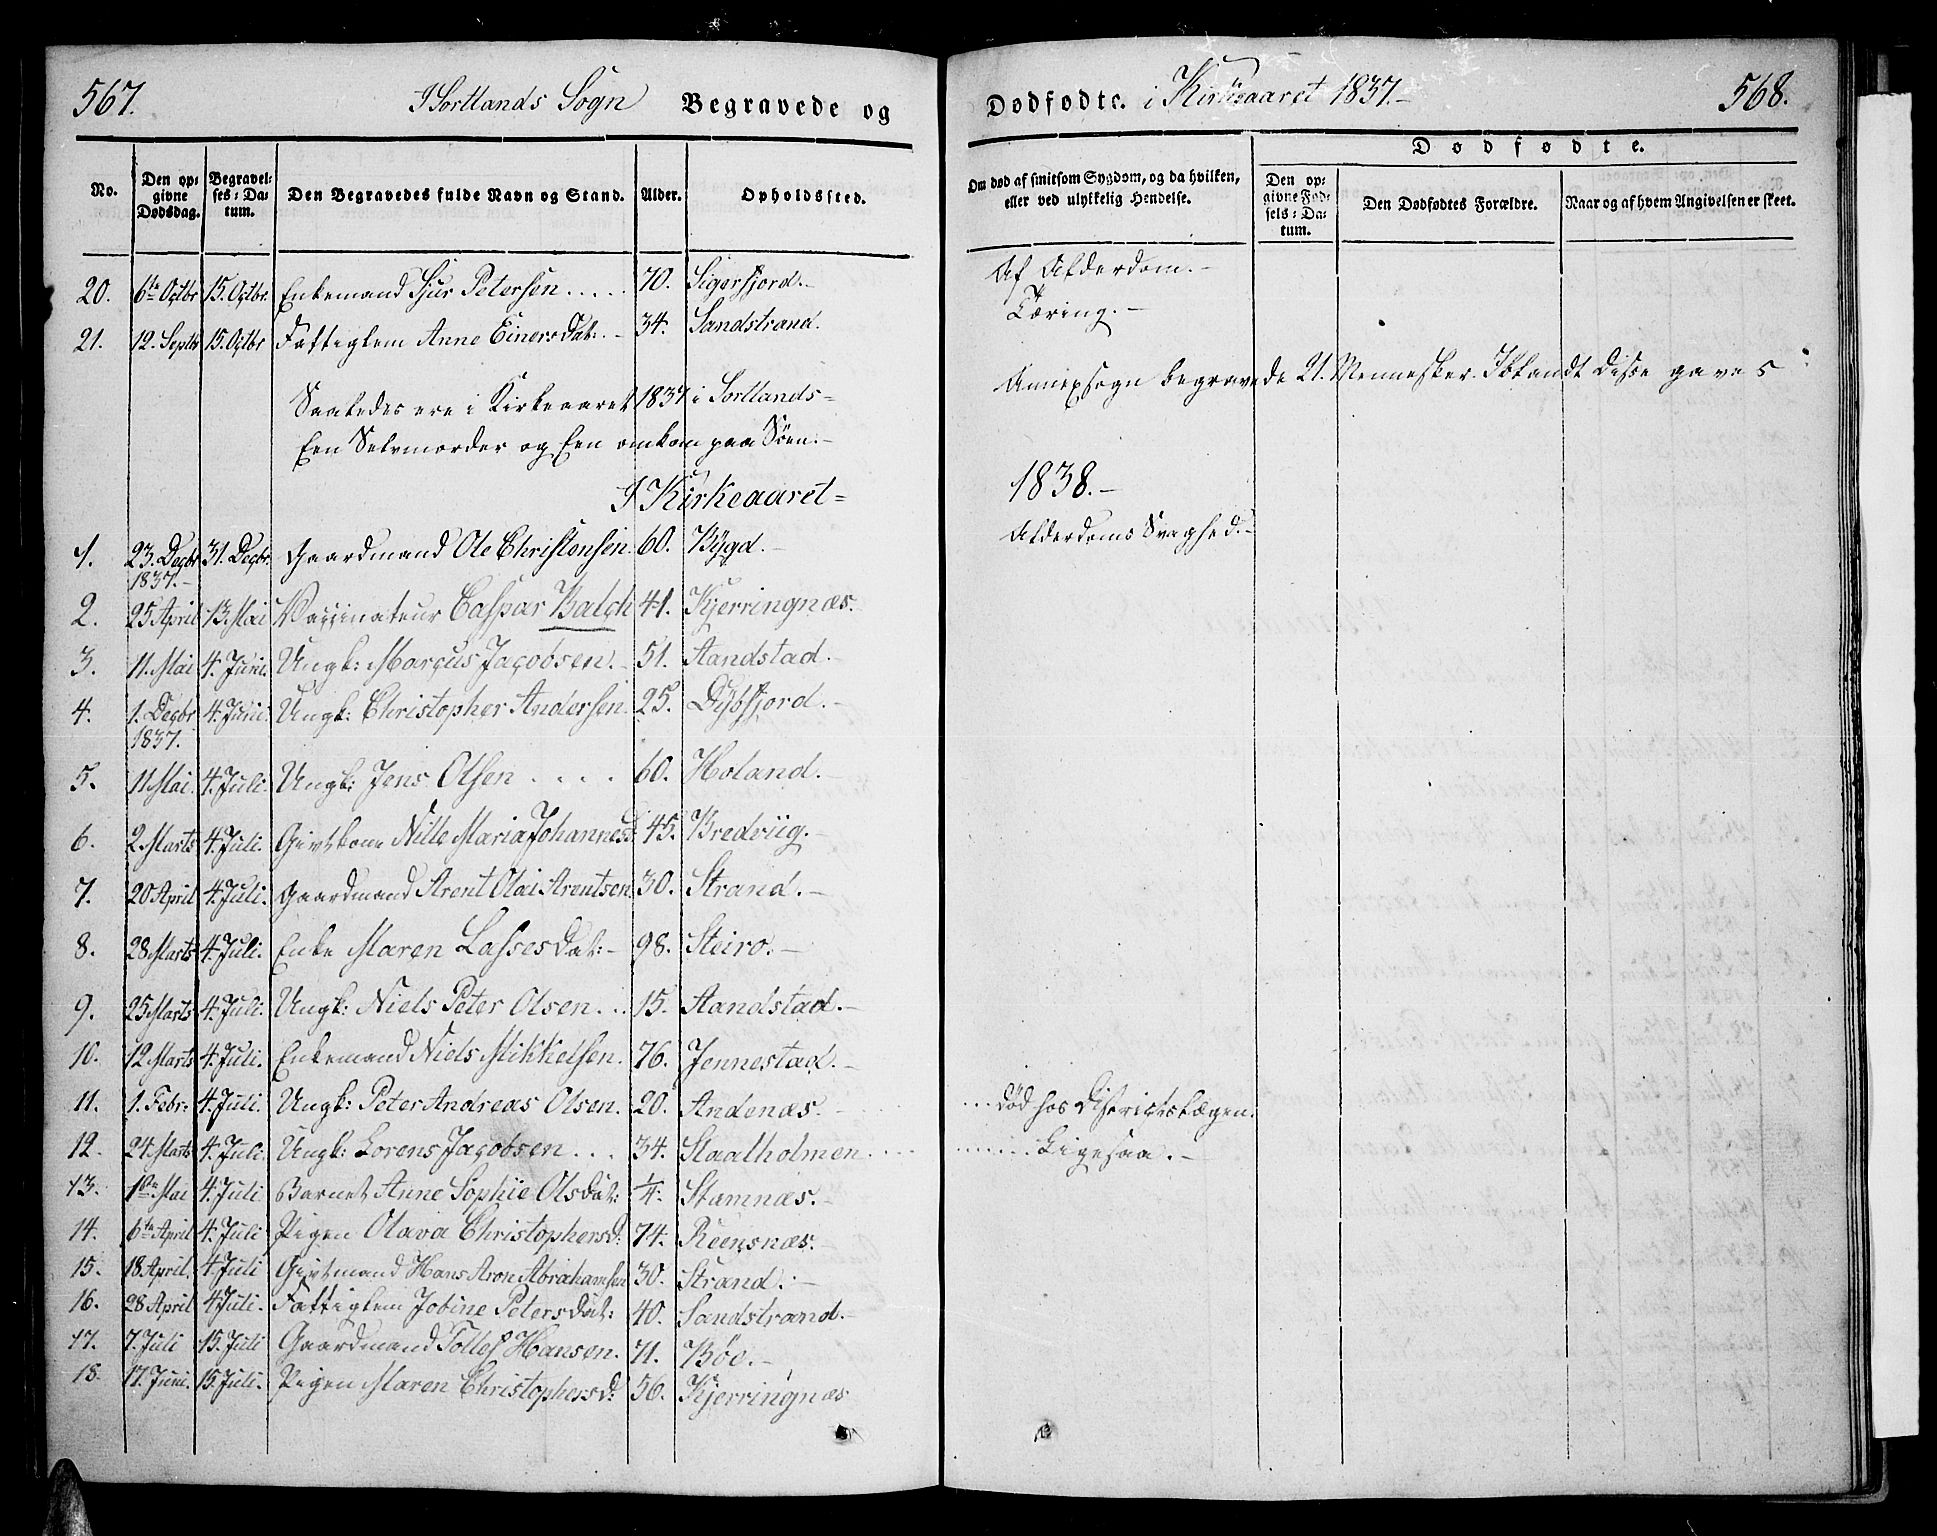 567. I Sortlands Sogn Begravede og
Dødfødte. i Kirkeaaret 1837.- 568.
No. Den opgivne Dødsdag. Begravelses-Datum. Den Begravedes fulde Navn og Stand. Alder. Opholdssted.
Om død af smitsom Sygdom, og da hvilken, eller ved ulykkelig Hendelse. Dødfødte. Den opgivne Fødsels-Datum. Den Dødfødtes Forældre. Naar og af hvem Angivelsen er skeet.
20. 6te Octbr 15. Octbr. Enkemand Sjur Petersen..... 70. Sigerfjord.- Af Alderdom.-
21. 12. Septbr 15. Octbr Fattiglem Anne Einersdat: - 34. Sandstrand. Tæring.-
Saaledes ere i Kirkeaaret 1837 i Sortlands= Annexsogn begravede 21. Mennesker. Iblandt disse gaves
Een Selvmorder og Een omkom paa Søen.-
I Kirkeaaret= 1838.-
1. 23. Decbr 1837.- 31. Decbr. Gaardmand Ole Christensen 60. Bÿgd.- Alderdoms Svaghed.-
2. 25 April 13. Mai Vaccinateur Caspar Balch 41. Kjerringnæs.
3. 11. Mai 4. Juni. Ungk: Marcus Jacobsen.- 51. Aandstad.-
4. 1. Decbr 1837. 4. Juni. Ungk: Christopher Andersen. 25. Dÿbfjord.-
5. 11 Mai 4. Juli. Ungk: Jens Olsen .... 60. Holand.-
6. 2. Marts 4. Juli. Givtkone Nille Maria Johannesd: 45. Bredviig.-
7. 20 April 4. Juli. Gaardmand Arent Olai Arentsen 30. Strand.-
8. 28 Marts 4. Juli. Enke Maren Lassesdat:- 98. Steiro.-
9. 25 Marts 4. Juli. Ungk: Niels Peter Olsen... 15. Aandstad.-
10. 12 Marts 4. Juli. Enkemand Niels Mikkelsen. 76. Jennestad.-
11. 1. Febr: 4. Juli. Ungk: Peter Andreas Olsen. 20. Andenæs.- ... død hos Districtslægen.
12. 24 Marts 4. Juli. Ungk: Lorens Jacobsen... 34. Skaalholmen.... ...... Ligesaa.-
13. 1ste Mai 4. Juli Barnet Anne Sophie Olsdat: 1/4. Stamnæs.-
14. 6te April 4. Juli Pigen Olava Christophersd: 74. Reensnæs.-
15. 18 April. 4. Juli Givtmand Hans Aron Abrahamsen 30. Strand.-
16. 28 April 4. Juli. Fattiglem Jobine Petersdat: 40. Sandstrand.-
17. 7. Juli 15. Juli Gaardmand Tollef Hansen. 71. Bøe.-
18. 17. Juni. 15. Juli. Pigen Maren Christophersd: 56. Kjerringnæs